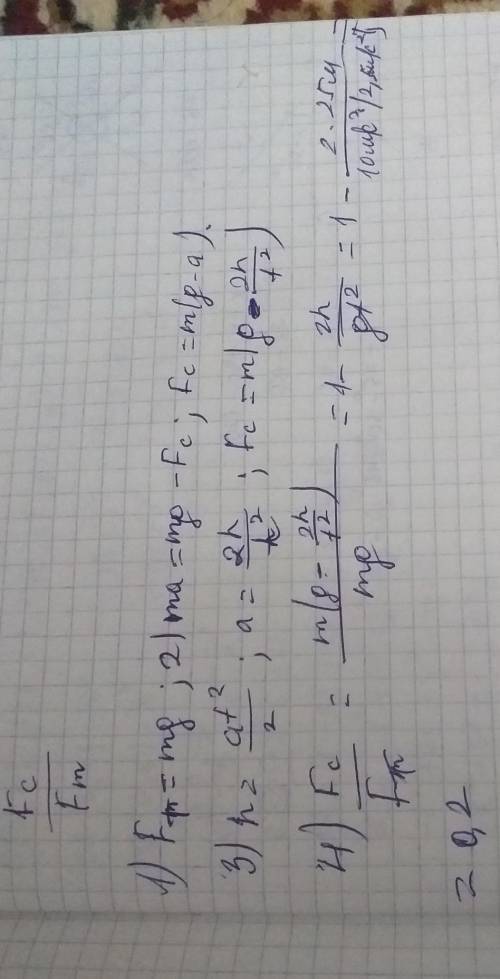 Fc/Fт
1) Fт = mg ; 2) ma = mg − Fc ; Fc = m(g − a).
3) h = at²/2 ; a = 2h/t² ; Fc = m(g − 2h/t²)
4) Fc/Fт = m(g − 2h/t²)/mg = 1 − 2h/gt² = 1 − 2·25м/10м/с² =
= 0,2